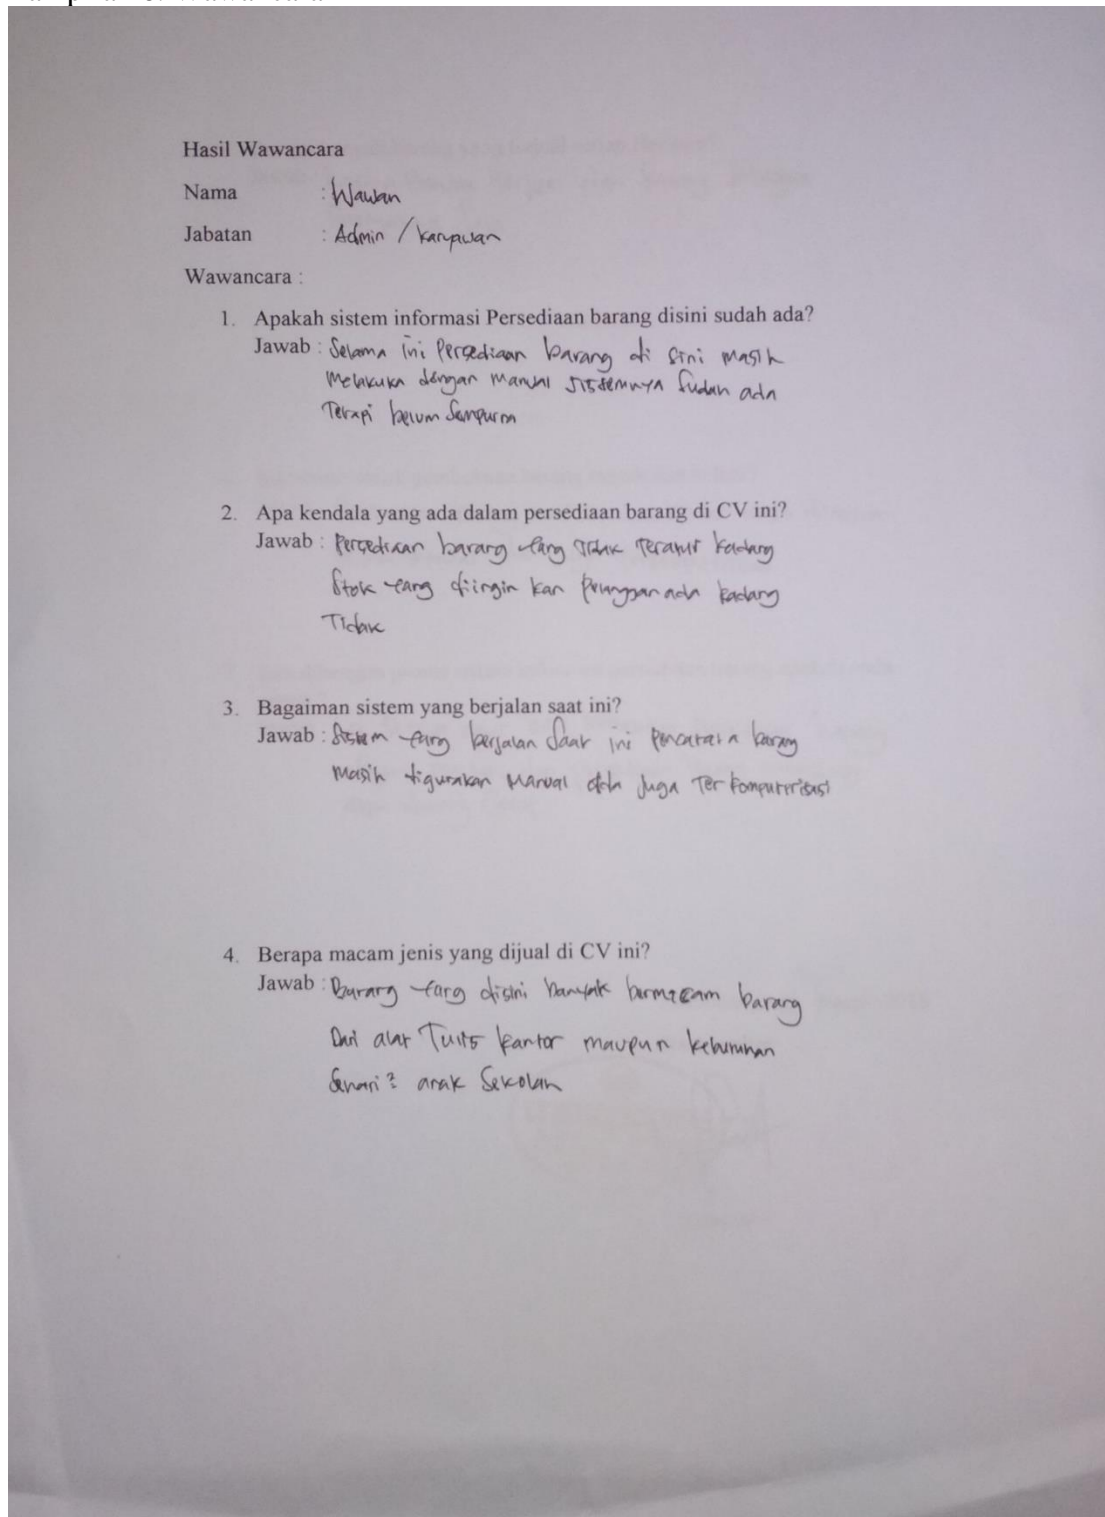 Hasil Wawancara
Nama : Wawan
Jabatan : Admin / karyawan
Wawancara :
1. Apakah sistem informasi Persediaan barang disini sudah ada?
Jawab : Selama ini Persediaan barang di sini masih
Melakukn dengan manual sistemnya sudah ada
Tetapi belum Sempurna
2. Apa kendala yang ada dalam persediaan barang di CV ini?
Jawab : Persediaan barang yang tidak teratur kadang
Stok yang diingin kan pelanggan ada kadang
Tidak
3. Bagaiman sistem yang berjalan saat ini?
Jawab : Sistem yang berjalan Saat ini Pencatata barang
masih digunakan Manual juga Ter komputerisasi
4. Berapa macam jenis yang dijual di CV ini?
Jawab : Barang yang disini banyak bermacam barang
Dari alat Tulis kantor maupun kebutuhan
Sehari2 anak Sekolah